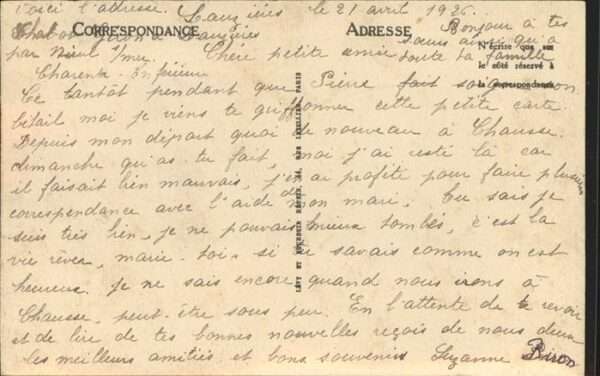 Voici l'adresse. Lauzières le 21 avril 1926. Bonjour à tes
CORRESPONDANCE
ADRESSE
Lauzières
sœurs ainsi qu'à
par Nieul s/mer. Chère petite amie toute ta famille
N'écrire que sur
le côté réservé à
la correspondance
Charente Inférieure
Ce tantôt pendant que Pierre fait son
bétail moi je viens te griffonner cette petite carte.
Depuis mon départ quoi de nouveau à Chausse.
dimanche qu'as-tu fait, moi j'ai resté là car
il faisait bien mauvais, j'en ai profité pour faire plusieurs
correspondance avec l'aide de mon mari. Tu sais je
suis très bien, je ne pouvais mieux tombés, c'est la
vie rêvée, marie-toi, si tu savais comme on est
heureux. je ne sais encore quand nous irons à
Chausse, peut-être sous peu. En l'attente de te revoir
et de lire de tes bonnes nouvelles reçois de nous deux
les meilleurs amitiés et bons souvenirs Suzanne
LEVY ET NEURDEIN REUNIS, 44, RUE LETELLIER, PARIS